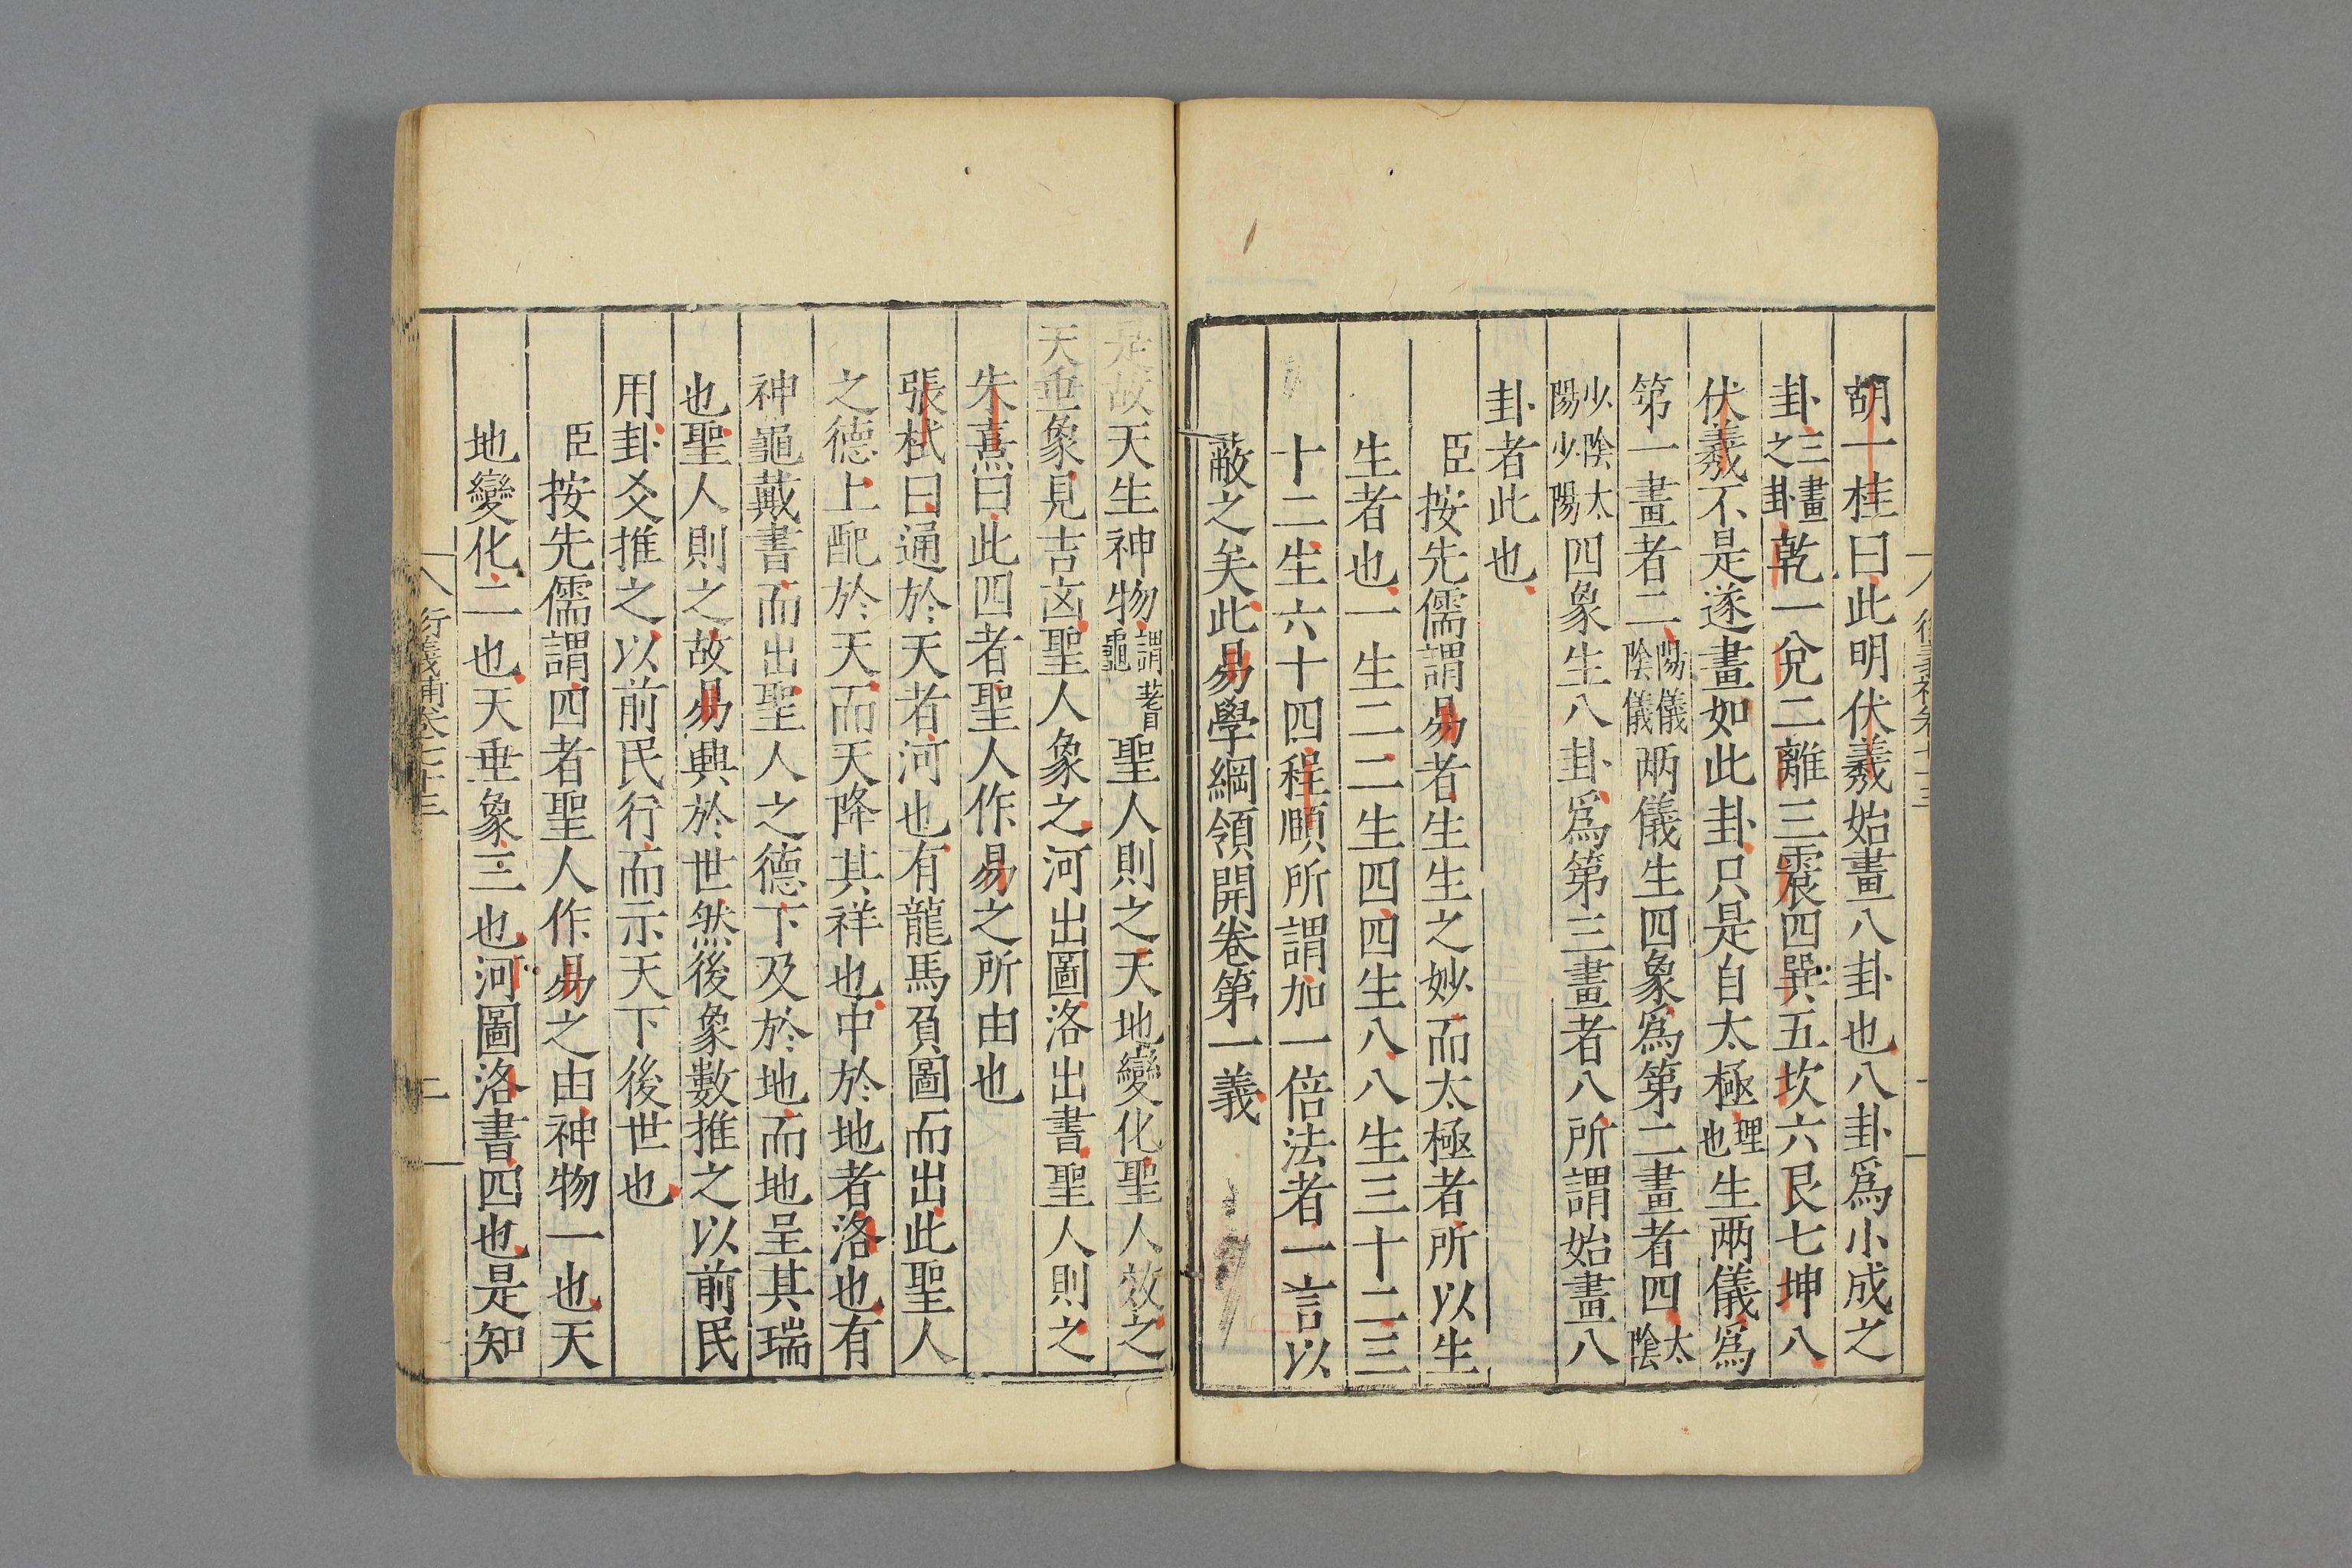 胡一桂曰此明伏羲始畫八卦也八卦爲小成之
卦三畫之卦乾一兌二離三震四巽五坎六艮七坤八
伏羲不是遂畫如此卦只是自太極理也生兩儀爲
第一畫者二陽儀陰儀兩儀生四象爲第二畫者四太陰
少陰太陽少陽四象生八卦爲第三畫者八所謂始畫八
卦者此也
臣按先儒謂易者生生之妙而太極者所以生
生者也一生二二生四四生八八生三十二三
十二生六十四程顥所謂加一倍法者一言以
蔽之矣此易學綱領開卷第一義
是故天生神物謂蓍龜聖人則之天地變化聖人效之
天垂象見吉凶聖人象之河出圖洛出書聖人則之
朱熹曰此四者聖人作易之所由也
張栻曰通於天者河也有龍馬負圖而出此聖人
之德上配於天而天降其祥也中於地者洛也有
神龜戴書而出聖人之德下及於地而地呈其瑞
也聖人則之故易興於世然後象數推之以前民
用卦爻推之以前民行而示天下後世也
臣按先儒謂四者聖人作易之由神物一也天
地變化二也天垂象三也河圖洛書四也是知
衍義補卷七十三
二